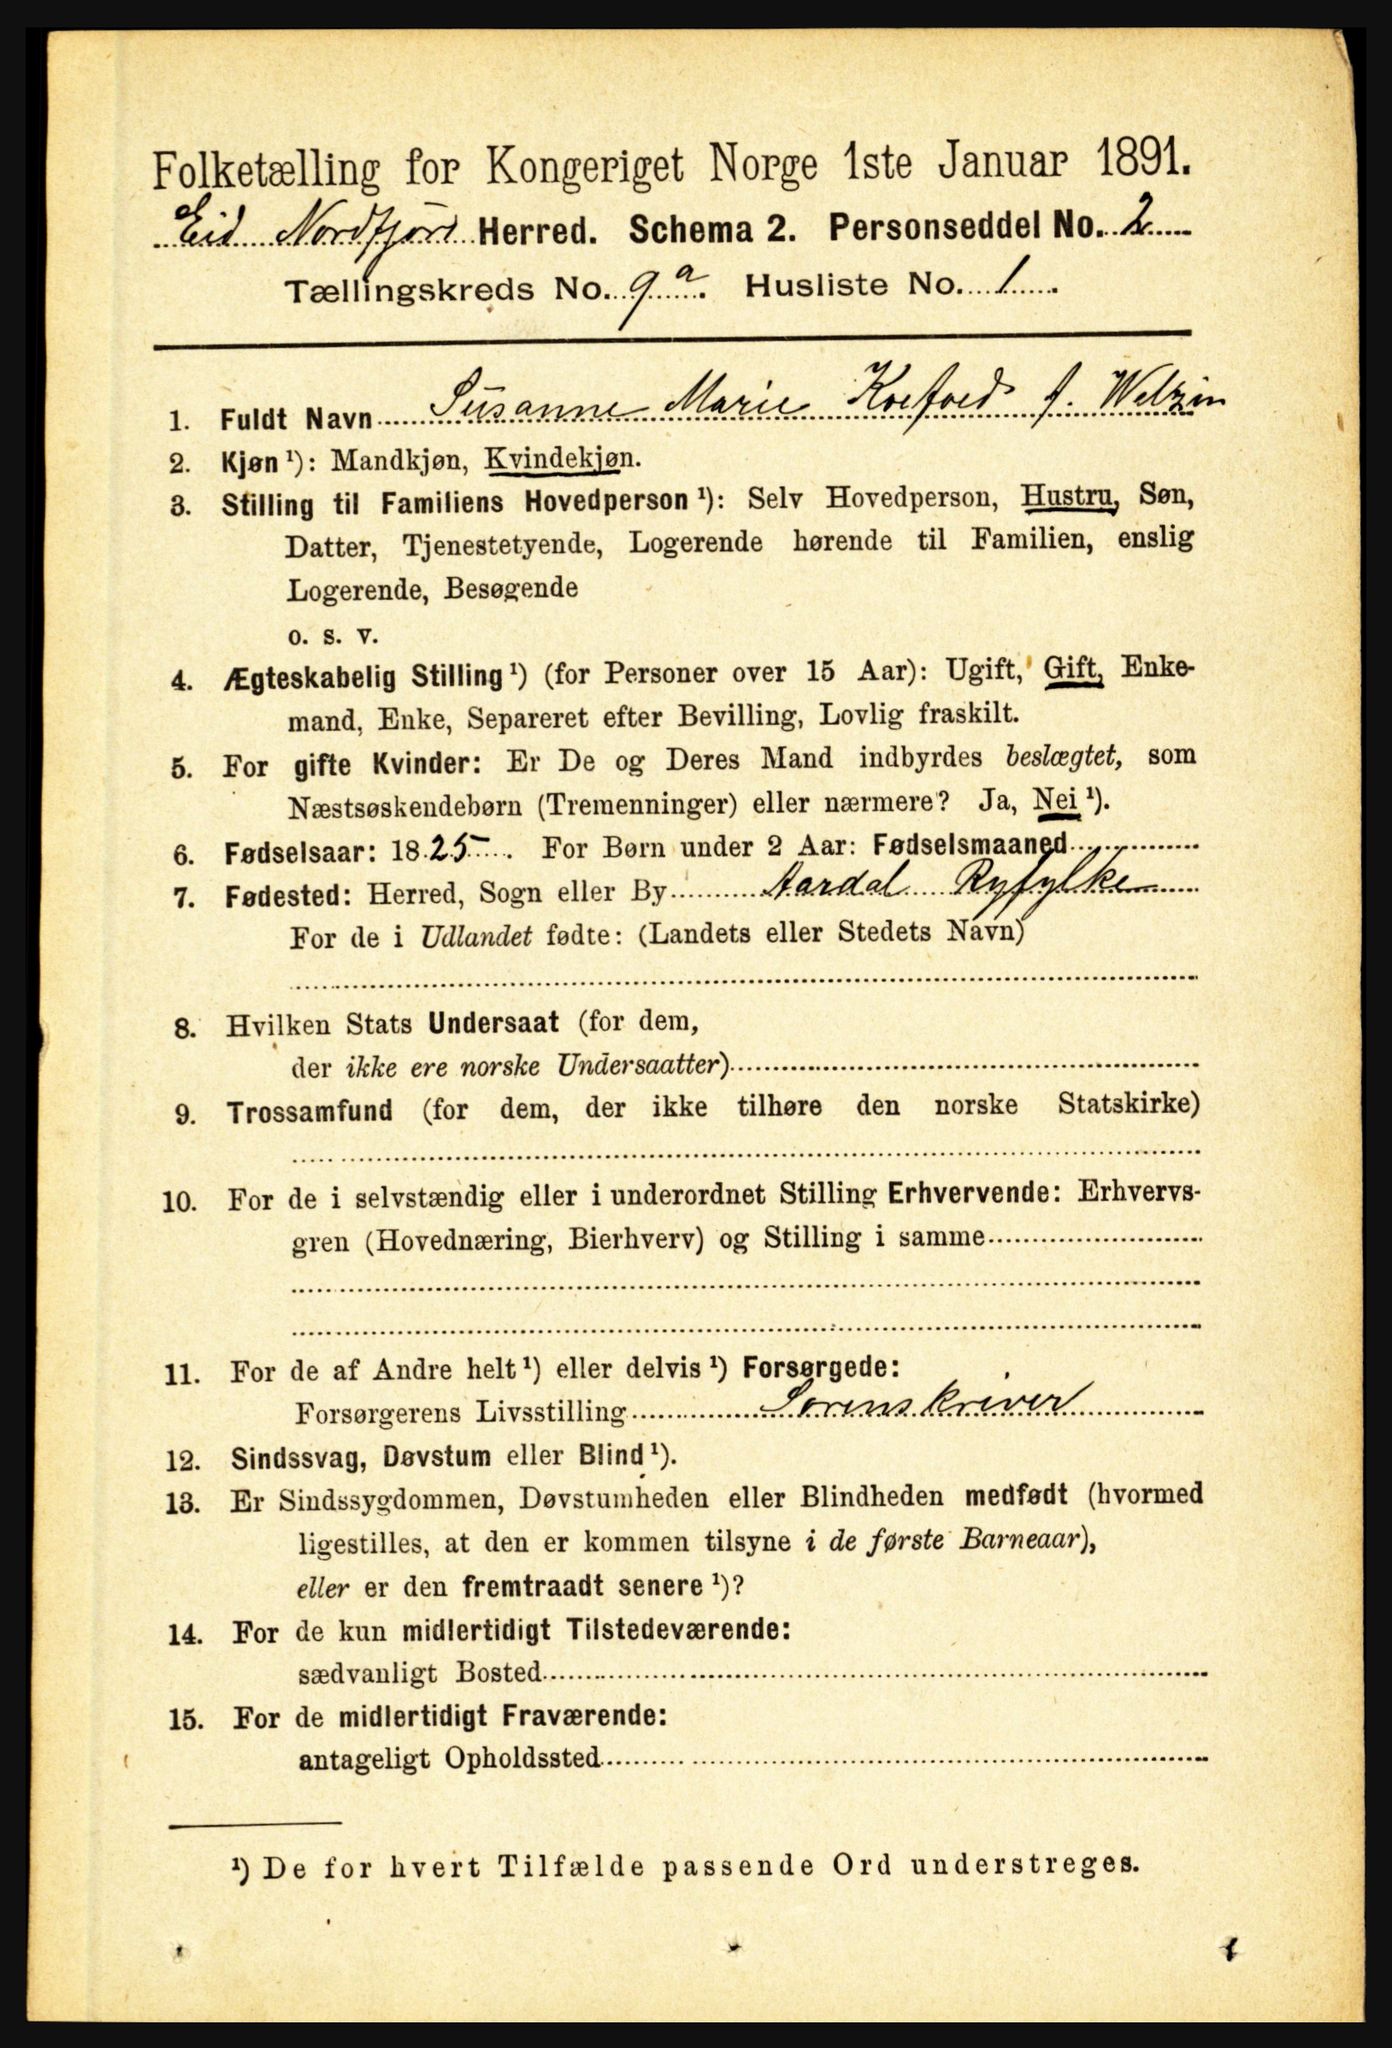 Folketælling for Kongeriget Norge 1ste Januar 1891.
Eid Nordfjord Herred. Schema 2. Personseddel No. 2
Tællingskreds No. 9a. Husliste No. 1
1. Fuldt Navn Susanne Marie Koefoed f. Welzin
2. Kjøn ¹): Mandkjøn, Kvindekjøn.
3. Stilling til Familiens Hovedperson ¹): Selv Hovedperson, Hustru, Søn,
Datter, Tjenestetyende, Logerende hørende til Familien, enslig
Logerende, Besøgende
o. s. v.
4. Ægteskabelig Stilling ¹) (for Personer over 15 Aar): Ugift, Gift, Enke-
mand, Enke, Separeret efter Bevilling, Lovlig fraskilt.
5. For gifte Kvinder: Er De og Deres Mand indbyrdes beslægtet, som
Næstsøskendebørn (Tremenninger) eller nærmere? Ja, Nei ¹).
6. Fødselsaar: 1825. For Børn under 2 Aar: Fødselsmaaned
7. Fødested: Herred, Sogn eller By Aardal Ryfylke
For de i Udlandet fødte: (Landets eller Stedets Navn)
8. Hvilken Stats Undersaat (for dem,
der ikke ere norske Undersaatter)
9. Trossamfund (for dem, der ikke tilhøre den norske Statskirke)
10. For de i selvstændig eller i underordnet Stilling Erhvervende: Erhvervs-
gren (Hovednæring, Bierhverv) og Stilling i samme
11. For de af Andre helt ¹) eller delvis ¹) Forsørgede:
Forsørgerens Livsstilling Sorenskriver
12. Sindssvag, Døvstum eller Blind ¹).
13. Er Sindssygdommen, Døvstumheden eller Blindheden medfødt (hvormed
ligestilles, at den er kommen tilsyne i de første Barneaar),
eller er den fremtraadt senere ¹)?
14. For de kun midlertidigt Tilstedeværende:
sædvanligt Bosted
15. For de midlertidigt Fraværende:
antageligt Opholdssted
¹) De for hvert Tilfælde passende Ord understreges.